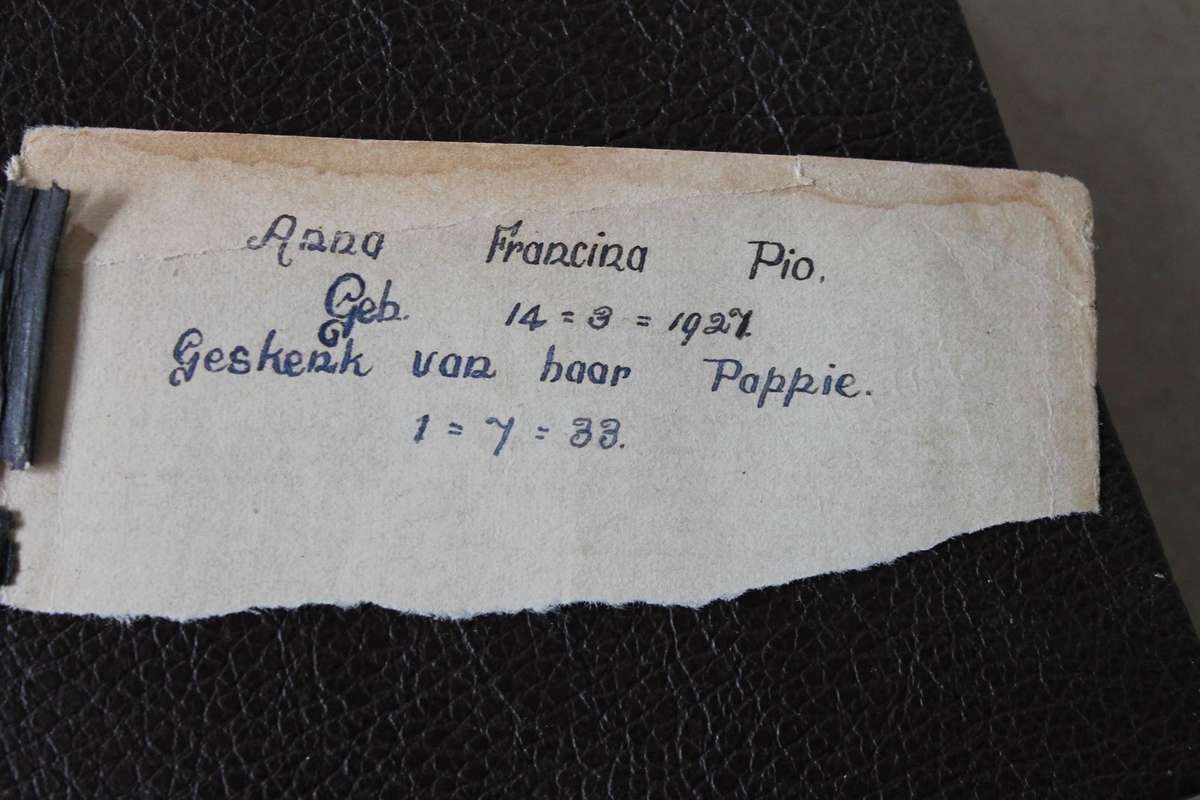 Anna Francina Pio.
Geb. 14 = 3 = 1927.
Geskenk van haar Pappie.
1 = 7 = 33.